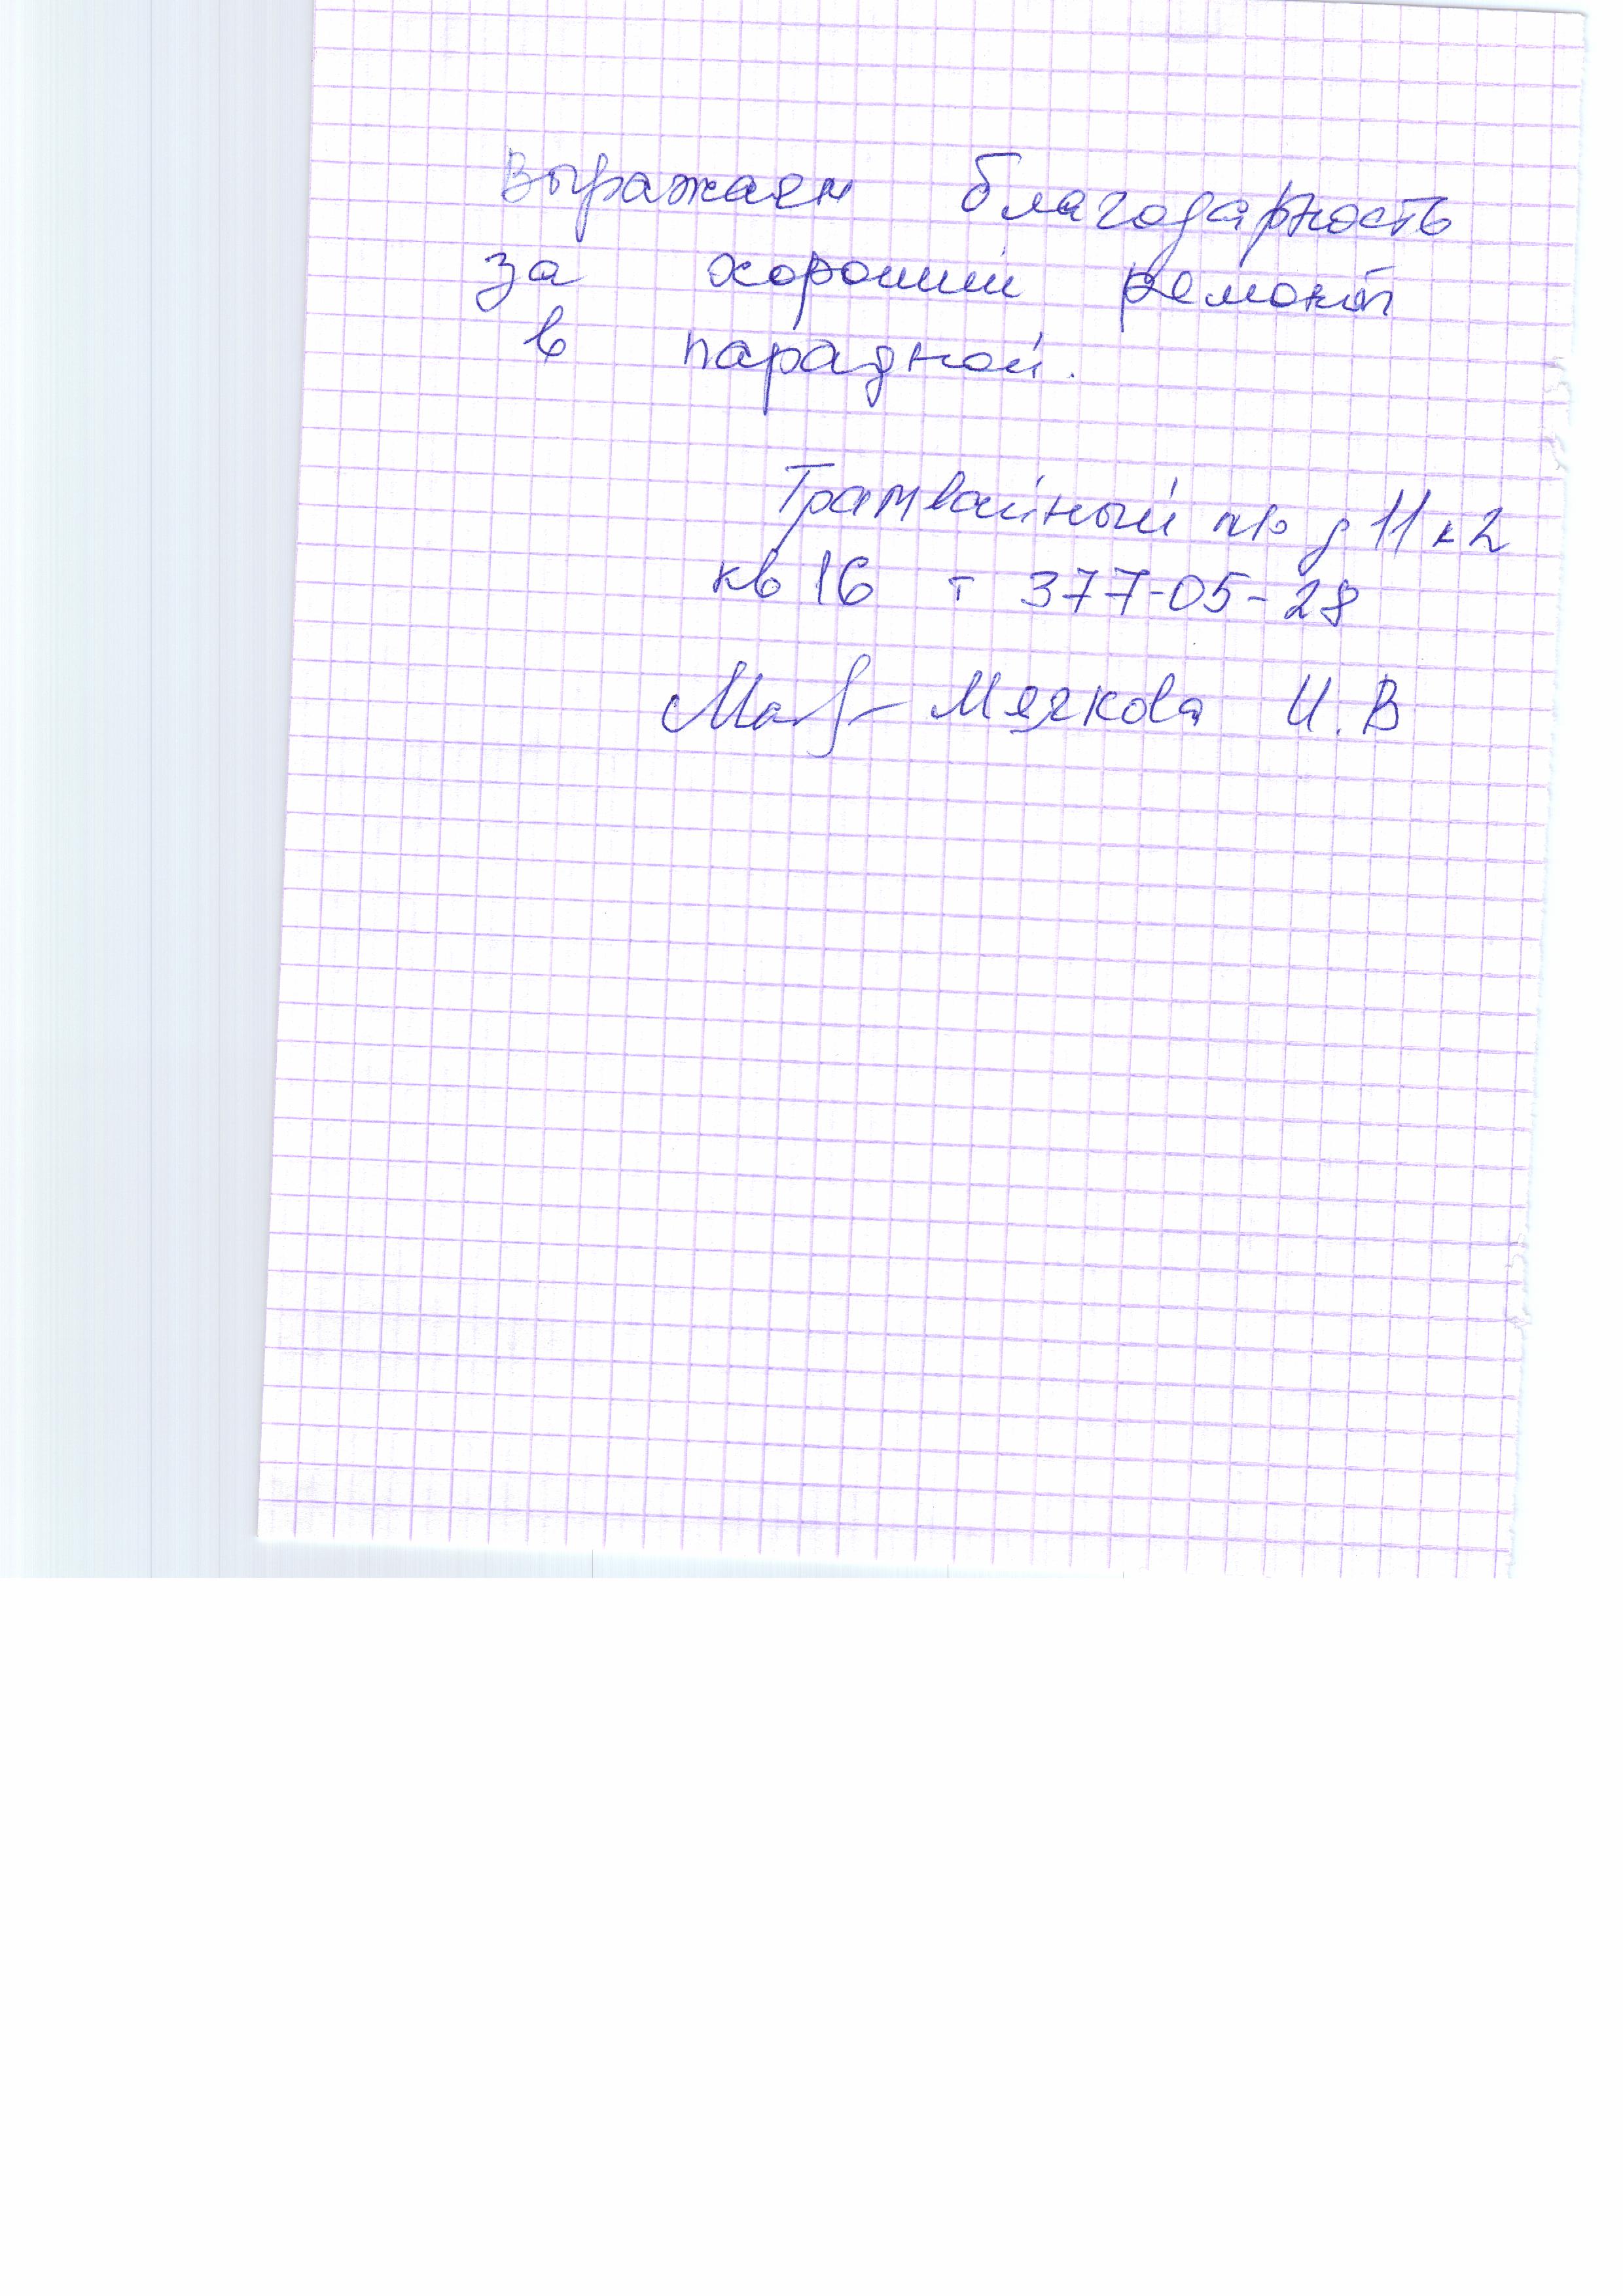 Выражаем благодарность
за хороший ремонт
в парадной.
Трамвайный пр д 11 к 2
кв 16 т 377-05-28
Мячкова И. В